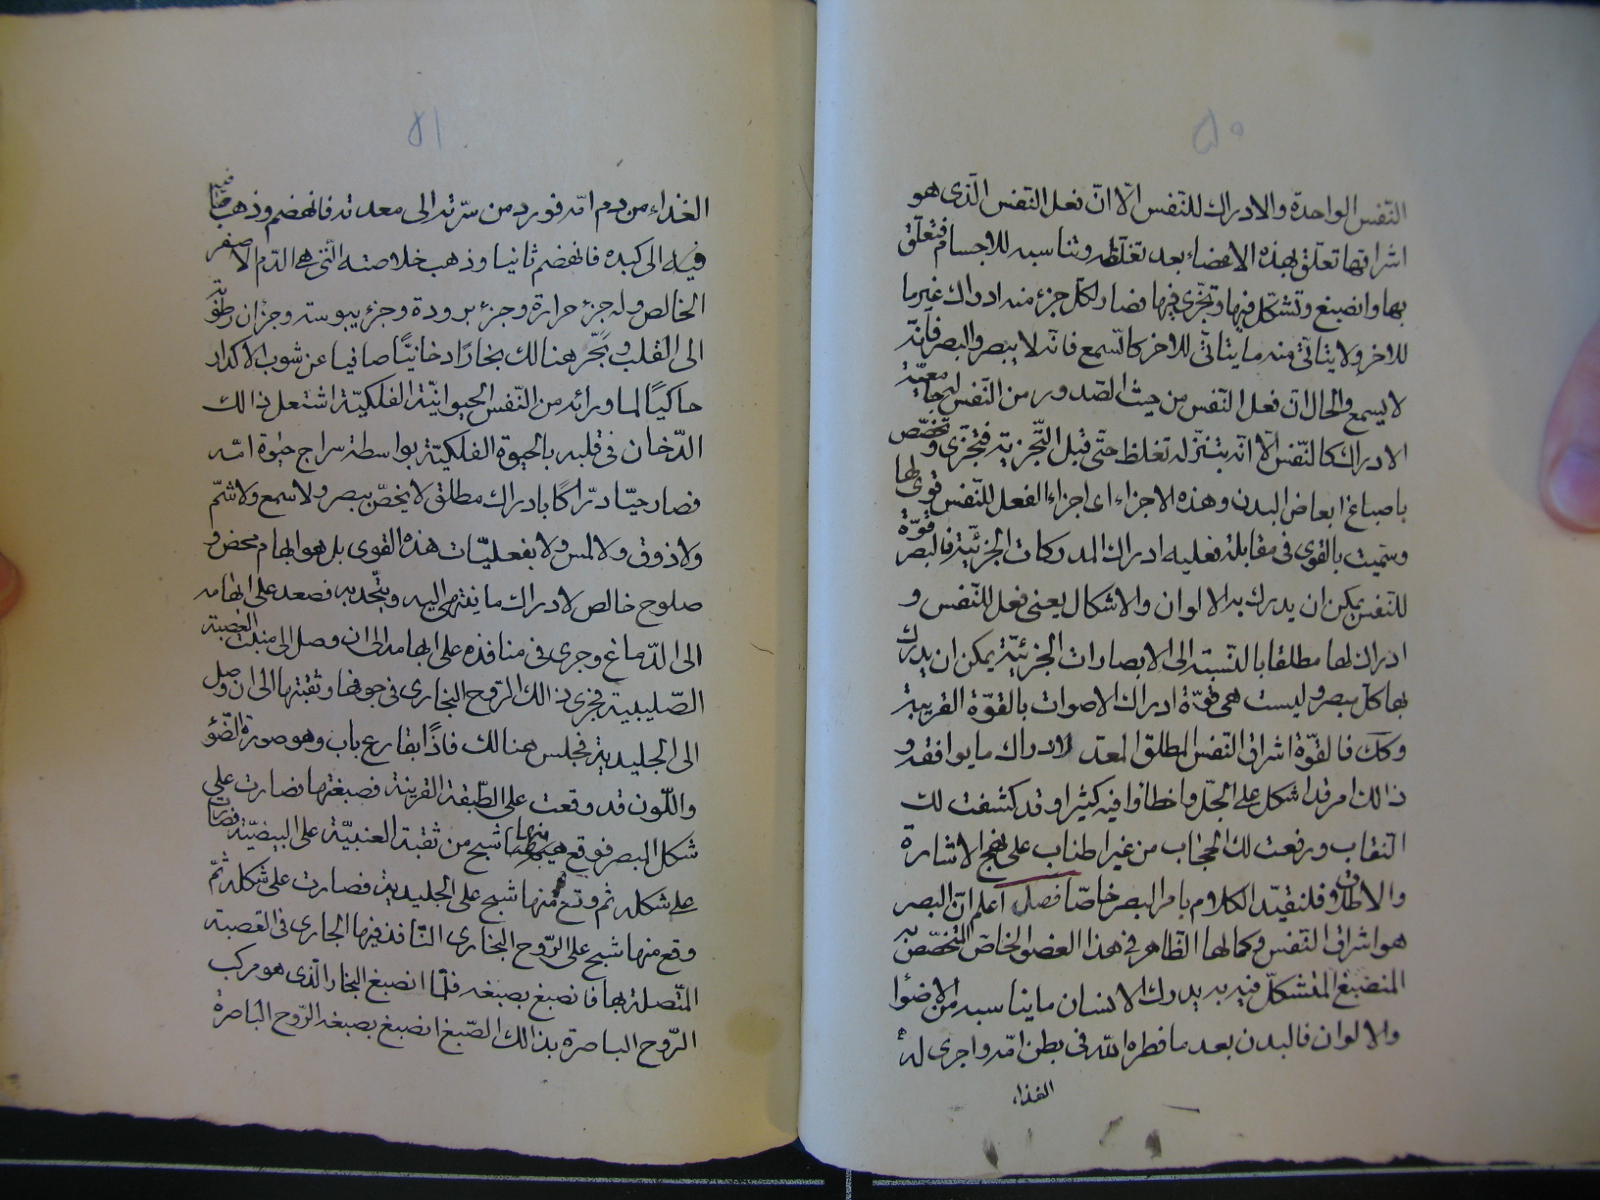 ٥٠
النّفس الواحدة والادراك للنّفس الّا انّ فعل النّفس الّذى هو
اشراقها تعلّق بهذه الاعضاء بعد تغلّظه وتناسبه للاجسام فتعلّق
بها وانصبغ وتشكّل فيها وتجزّى فيها فصار لكلّ جزء منه ادراك غير ما
للاخر ولا يتاتّى منه ما يتاتّى للاخر كالسّمع فانّه لا يبصر والبصر فانّه
لا يسمع والحال انّ فعل النّفس من حيث الصّدور من النّفس لجامعيّة
الادراك كالنّفس الّا انّه بتنزّله تغلظ حتّى قبل التّجزية فتجزّى وتخصّص
باصباغ ابعاض البدن وهذه الاجزاء اى اجزاء الفعل للنّفس قوى لها
وسمّيت بالقوى فى مقابلة فعليه ادراك المدركات الجزئيّة فالبصر قوّة
للنّفس يمكن ان يدرك به الالوان والاشكال يعنى فعل للنّفس و
ادراك لها مطلقا بالنّسبة الى الابصارات الجزئيّة يمكن ان يدرك
بها كلّ مبصر وليست هى قوّة ادراك الاصوات بالقوّة القريبة
وكك فالقوّة اشراق النّفس المطلق المعدّ لادراك ما يوافقه و
ذالك امر قد اشكل على الجلّ واخطاوا فيه كثيرا وقد كشفت لك
النقاب ورفعت لك الحجاب من غير اطناب على نهج الاشارة
والاطراق فلنقيّد الكلام بامر البصر خاصّا فصل اعلم انّ البصر
هو اشراق النّفس وكمالها الظّاهر فى هذا العضو الخاصّ المتخصّص به
المنصبغ المتشكّل فيه به يدرك الانسان ما يناسبه من الاضوا
والالوان فالبدن بعد ما فطره اللّه فى بطن امّه واجرى له
الغذاء
٥١
الغذاء من دم امّه فورد من سرّته الى معدته فانهضم وذهب
فيه الى كبده فانهضم ثانيا وذهب خلاصته الّتى هى الدّم الاصفر
الخالص وله جزء حرارة وجزء برودة وجزء يبوسة وجزان رطوبة
الى القلب وبخّر هنالك بخارًا دخانيًّا صافيا عن شوب الاكدار
حاكيًا لما ورائه من النّفس الحيوانيّة الفلكيّة اشتعل ذالك
الدّخان فى قلبه بالحيوة الفلكيّة بواسطة سراج حيوة امّه
فصار حيّا درّاكًا بادراك مطلق لا يخصّ ببصر ولا سمع ولا شمّ
ولا ذوق ولا لمس ولا بفعليّات هذه القوى بل هو ابهام محض و
صلوح خالص لادراك ما ينتهى اليه ويتّحد به فصعد على ابهامه
الى الدّماغ وجرى فى منافذه على ابهامه الى ان وصل الى منبت العصبة
الصّليبية فجرى ذالك الرّوح البخارى فى جوفها وثقبتها الى ان وصل
الى الجليديّة فجلس هنالك فاذًا بقارع باب وهو صورة الضّوء
واللّون قد وقعت على الطّبقة القرنيّة فصبغتها فصارت على
شكل المبصر فوقع منها شبح من ثقبة العنبيّة على البيضيّة فصارت
على شكله ثم وقع منها شبح على الجليديّة فصارت على شكله ثمّ
وقع منها شبح على الرّوح البخارى النّافذ فيها الجارى فى القصبة
المتّصلة بها فانصبغ بصبغه فلمّا انصبغ البخار الّذى هو مركب
الرّوح الباصرة بذالك الصّبغ انصبغ بصبغه الرّوح الباصرة